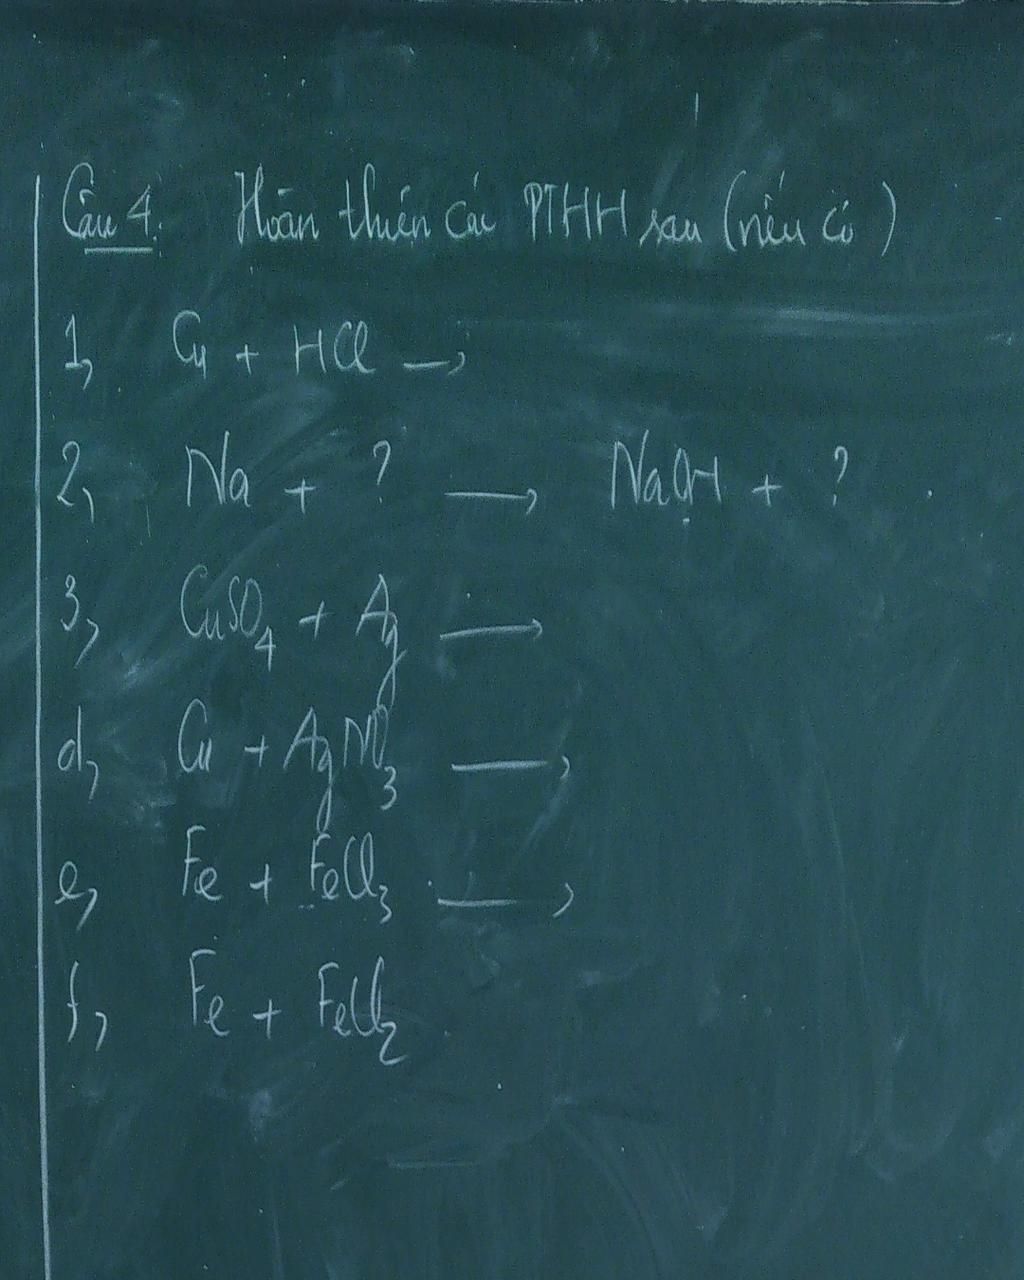 Câu 4: Hoàn thiện các PTHH sau (nếu có)
1, Cu + HCl →
2, Na + ? → NaOH + ?
3, CuSO₄ + Ag →
d, Cu + AgNO₃ →
e, Fe + FeCl₃ →
f, Fe + FeCl₂